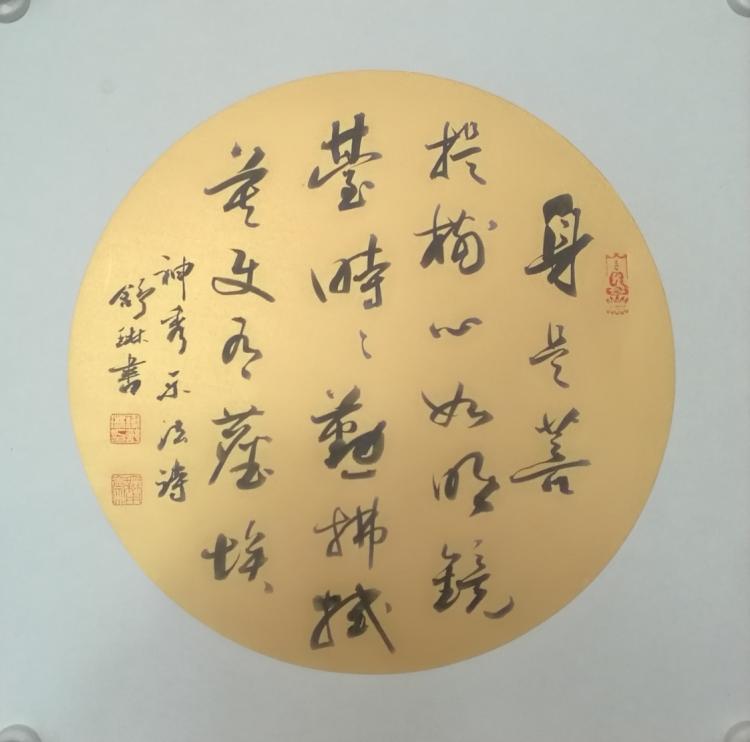 身是菩
提樹心如明鏡
臺時〻勤拂拭
莫使有塵埃
神秀示法詩
舒琳書